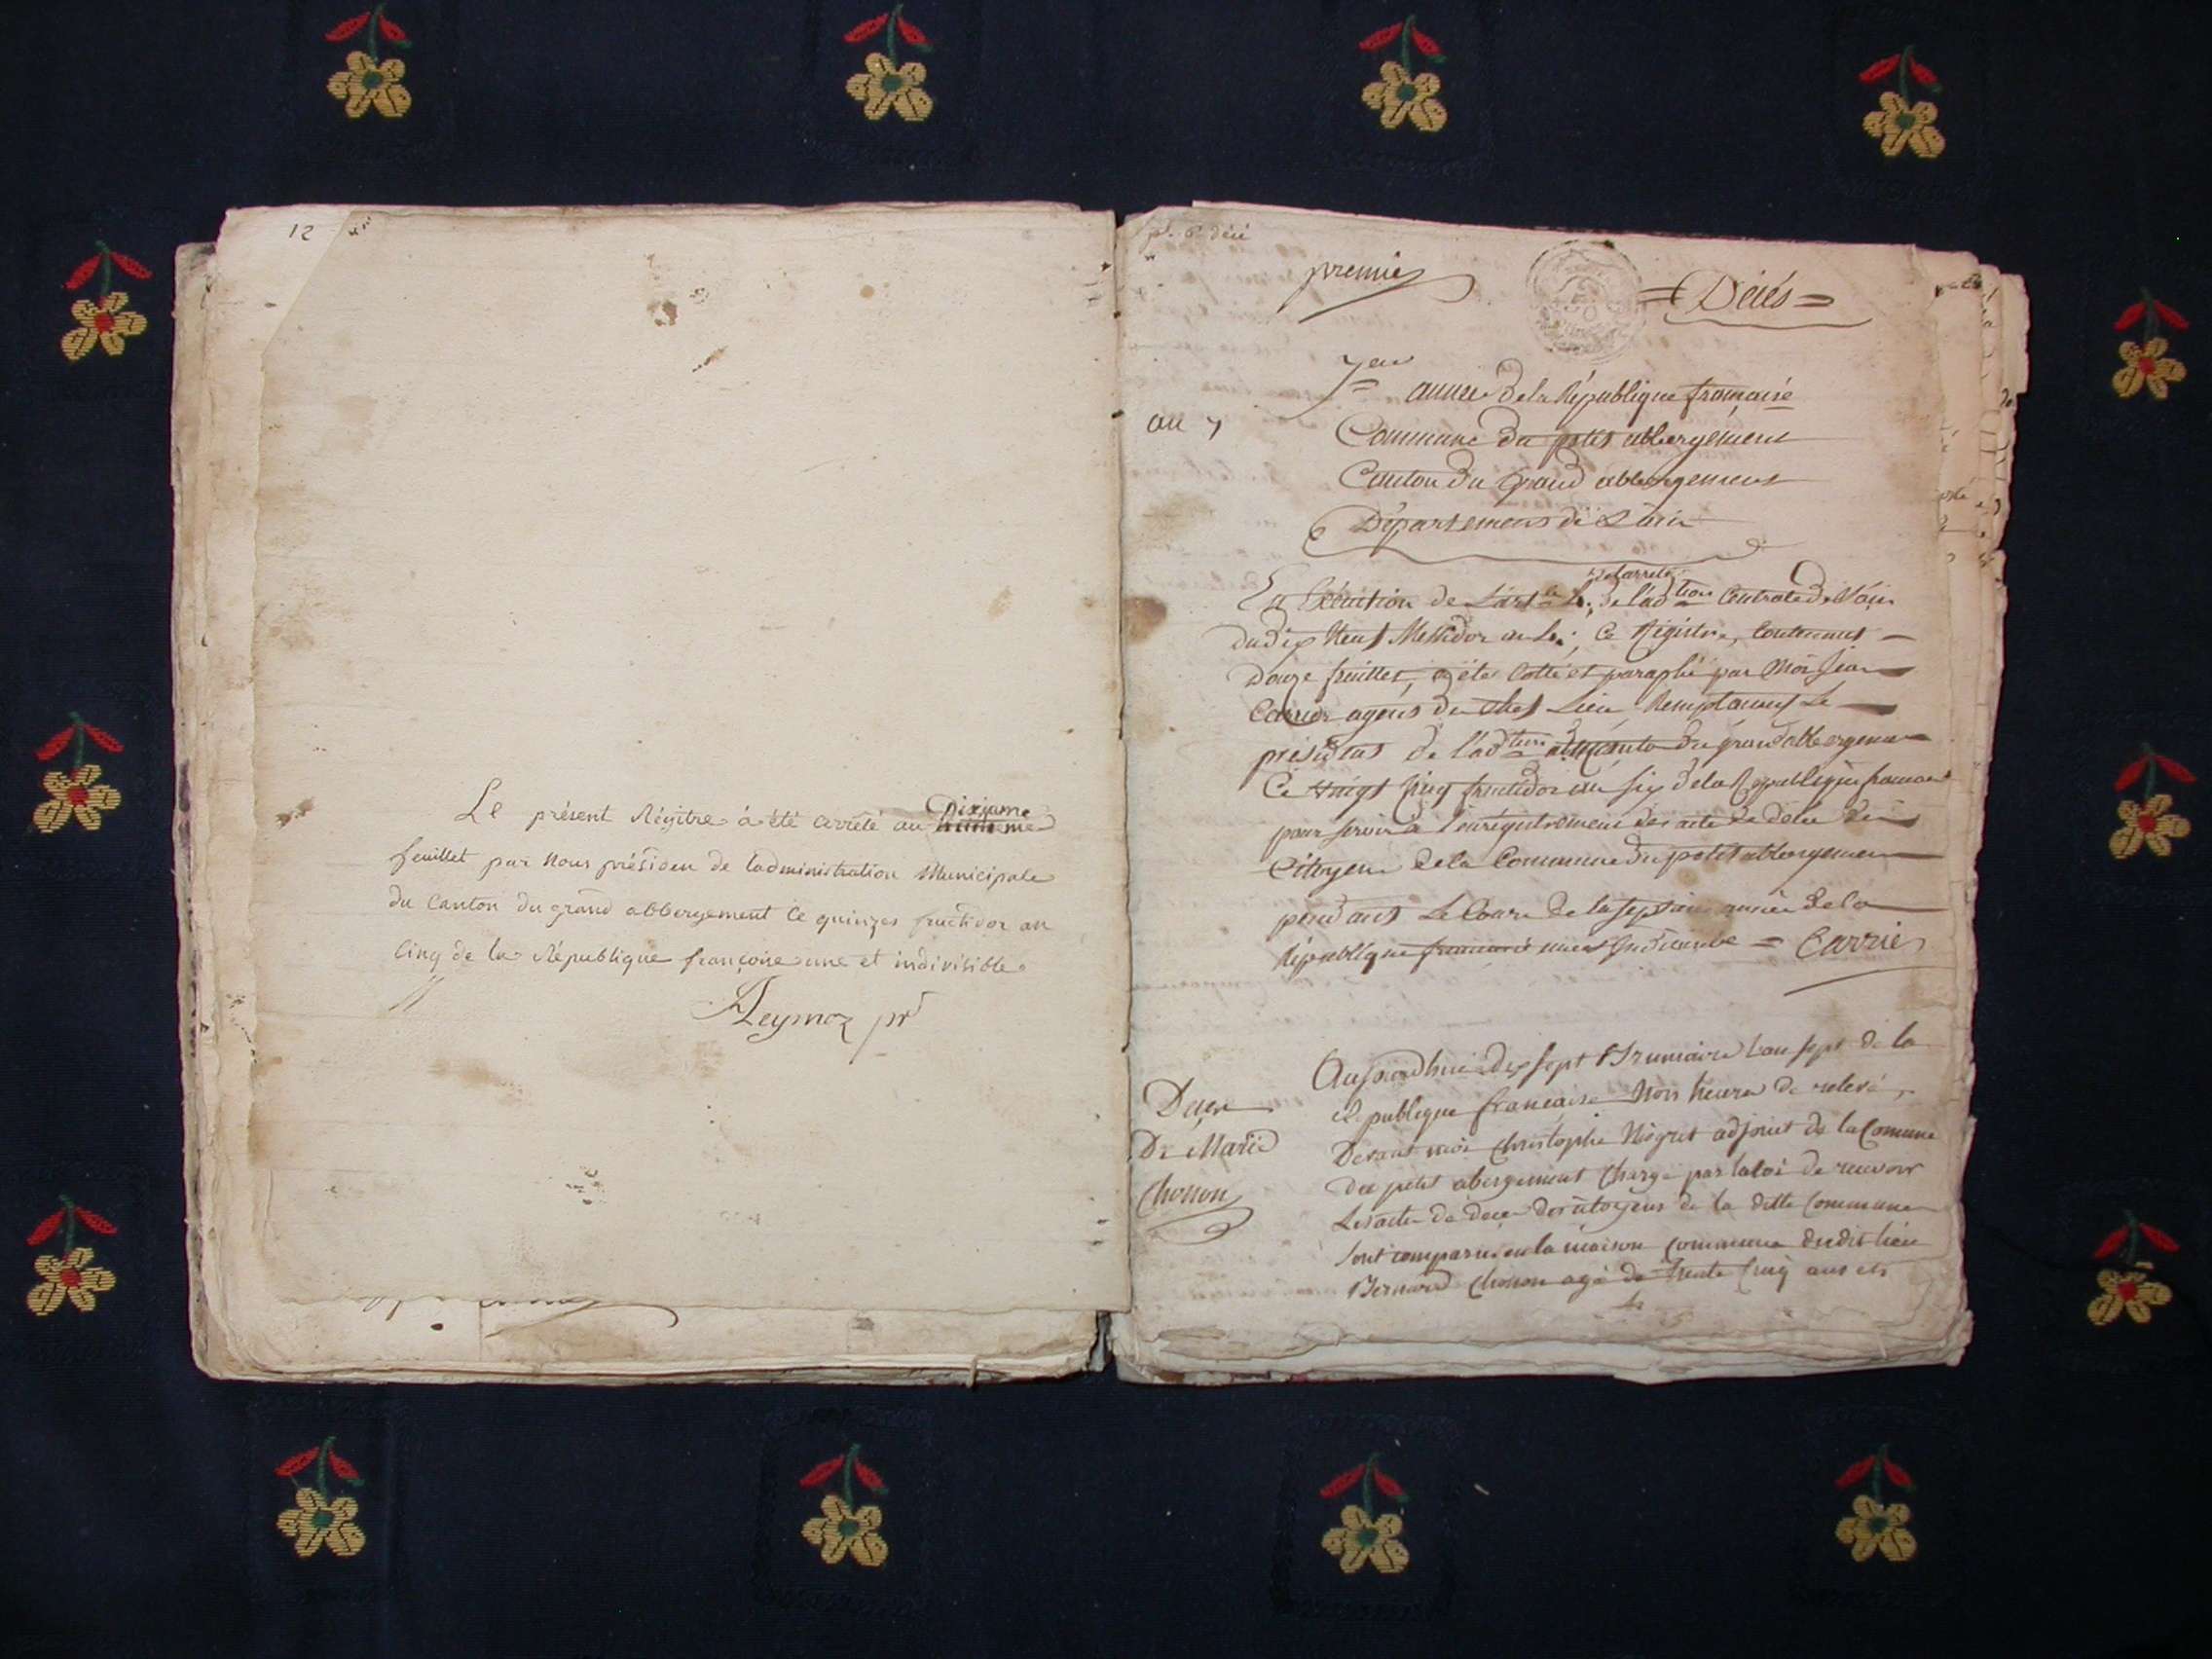 12
Le présent Régitre a été arrêté au Dixjame
feuillet par nous présiden de ladministration Municipale
du Canton du grand abbergement le quinzes fructidor an
Cinq de la République françoise une et indivisible
Reymoz pr
premier
= Décés =
7eme annee de la République française
an 7
Commune du petit abbergement
Canton du grand abbergement
Département de L'ain
de larreté
En Exécution de L'art.le de l'adtion Centrale de l'ain
du dix Neuf Messidor an ce Régistre, Contenant
Douze feuillets, a été Cotté et paraphé par moi Jean
Carrier agent du chef Lieu Remplacant Le
président de l'adtion du canton du grand abbergement
Ce vingt Cinq fructidor an six de la Republique francaise
pour servir a l'enrégistrement des acte de décé des
Citoyens de la Commune du petit abbergement
pendant Le Cour de la septieme année de la
République francaise une et Indivisible = Carrier
Aujourdhui dix sept Brumaire l'an sept de la
Republique francaise trois heures de relevé,
Decer
De Marie
Chonon
Devant moi Christophe Nigret adjoint de la Comune
du petit abergement Chargé par la loi de recevoir
Les actes de décer des citoyens de la ditte Commune
sont comparus en la maison commune dudit lieu
Bernard Chonon agé de trente Cinq ans et